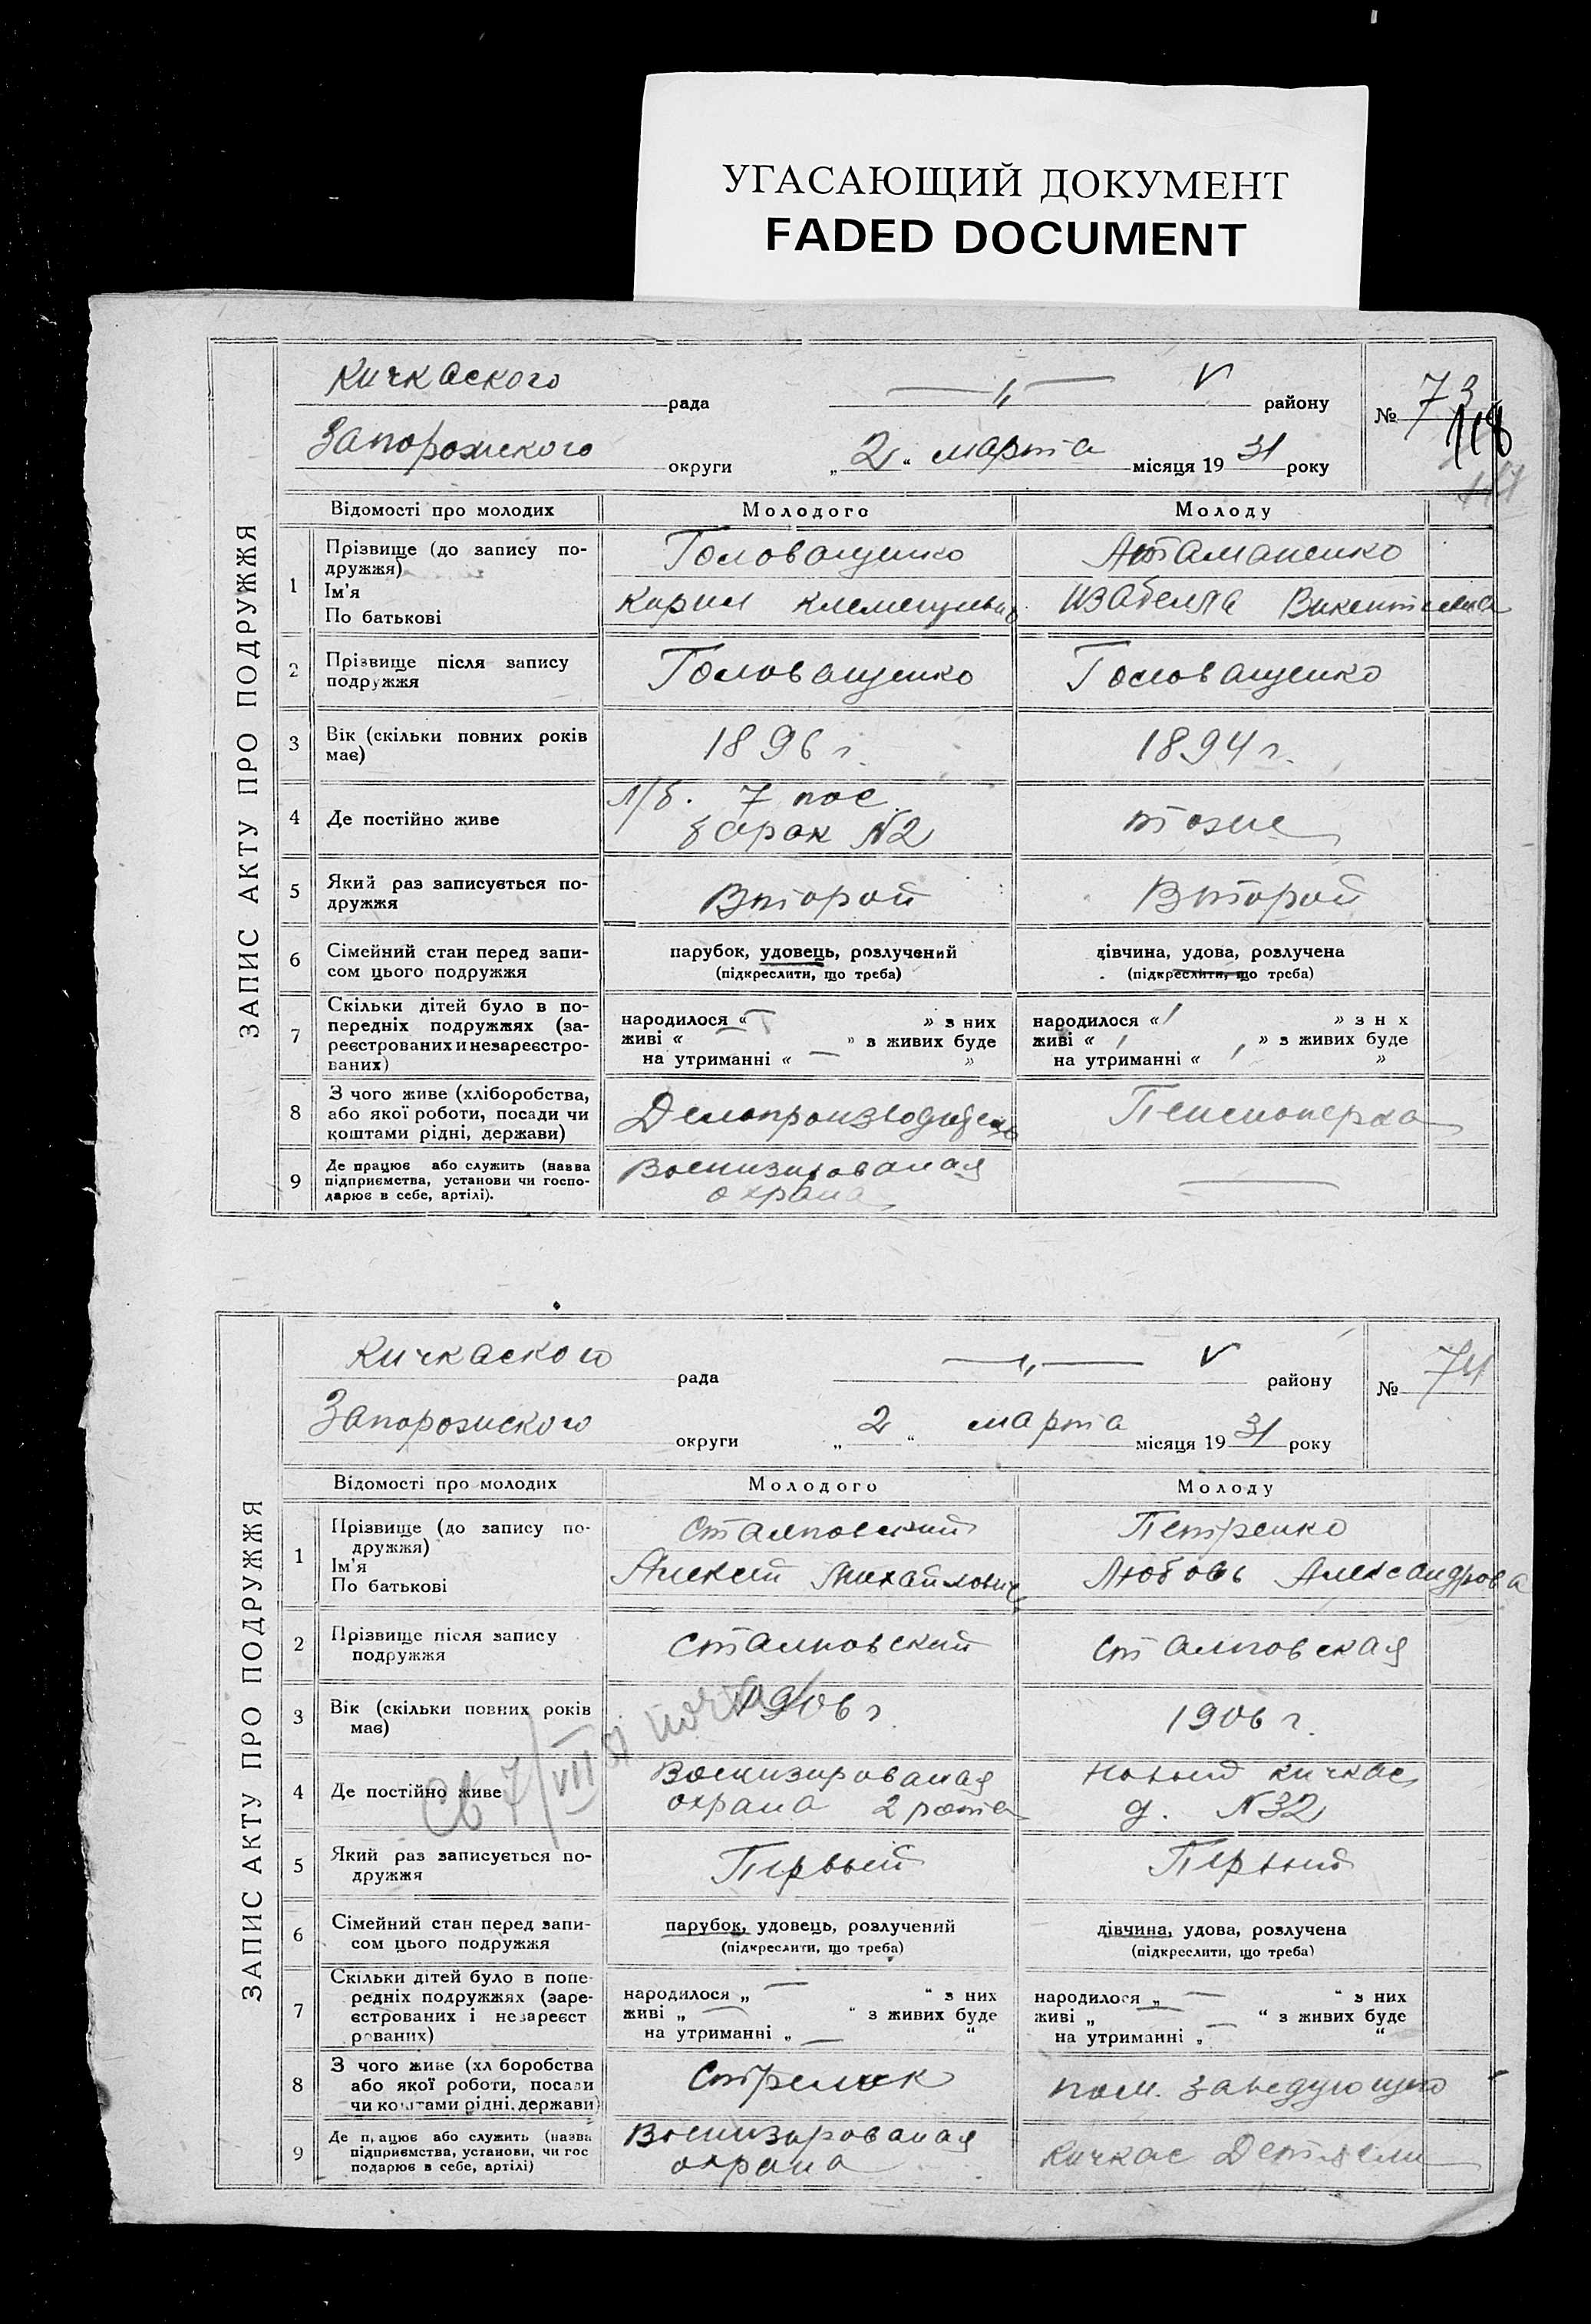 УГАСАЮЩИЙ ДОКУМЕНТ
FADED DOCUMENT
ЗАПИС АКТУ ПРО ПОДРУЖЖЯ
Кичкаского рада
—„— V району
№ 73
118
Запорожского округи
„2“ марта місяця 1931 року
Відомості про молодих Молодого Молоду
1 Прізвище (до запису по-
дружжя)
Ім'я
По батькові
Головащенко Атаманенко
Кирил Клементьевич Изабелла Викентиевна
2 Прізвище після запису
подружжя
Головащенко Головащенко
3 Вік (скільки повних років
має)
1896 г. 1894 г.
4 Де постійно живе
л/б. 7 пос.
барак N2 тоже
5 Який раз записується по-
дружжя
Второй Второй
6 Сімейний стан перед запи-
сом цього подружжя
парубок, удовець, розлучений дівчина, удова, розлучена
(підкреслити, що треба) (підкреслити, що треба)
7 Скільки дітей було в по-
передніх подружжях (за-
реєстрованих и незареєстро-
ваних)
народилося « — » з них народилося « / » з н х
живі « — » з живих буде живі « / » з живих буде
на утриманні « — » на утриманні « / »
8 З чого живе (хліборобства,
або якої роботи, посади чи
коштами рідні, держави)
Делопроизводитель Пенсионерка
9 Де працює або служить (назва
підприємства, установи чи госпо-
дарює в себе, артілі).
Военизированая
охрана —
ЗАПИС АКТУ ПРО ПОДРУЖЖЯ
Кичкаского рада
—„— V району
№ 74
Запорожского округи
„2“ марта місяця 1931 року
Відомості про молодих Молодого Молоду
1 Прізвище (до запису по-
дружжя)
Ім'я
По батькові
Петренко
Алексей Михайлович Любовь Александрова
2 Прізвище після запису
подружжя
3 Вік (скільки повних років
має)
1906 г 1906 г.
Св 7/VII
4 Де постійно живе
Военизированая Новый Кичкас
охрана 2 рота д. N32
5 Який раз записується по-
дружжя
Первый Первый
6 Сімейний стан перед запи-
сом цього подружжя
парубок, удовець, розлучений дівчина, удова, розлучена
(підкреслити, що треба) (підкреслити, що треба)
7 Скільки дітей було в попе-
редніх подружжях (заре-
єстрованих і незареєст
рованих)
народилося „ — “ з них народилося „ — “ з них
живі „ — “ з живих буде живі „ — “ з живих буде
на утриманні „ — “ на утриманні „ — “
8 З чого живе (хл боробства
або якої роботи, посади
чи коштами рідні, держави)
Стрелок пом. заведующего
9 Де працює або служить (назва
підприємства, установи, чи гос
подарює в себе, артілі)
Военизированая
охрана Кичкас Детясли